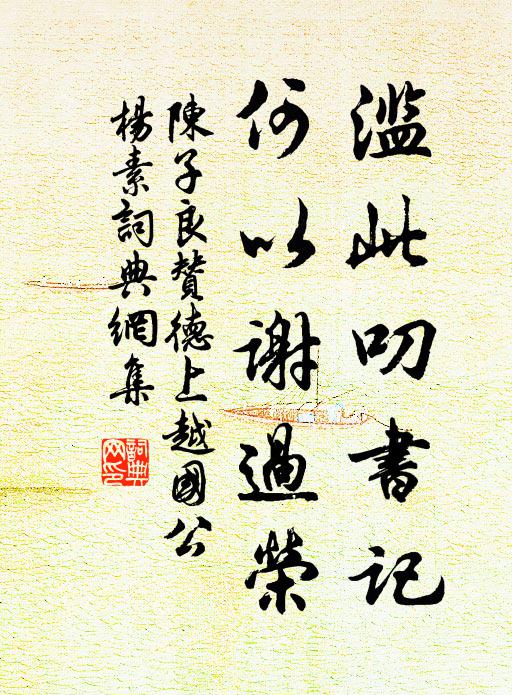 濫此叨書記
何以謝過榮
陳子良贊德上越國公
楊素詞典網集
詞典
网印